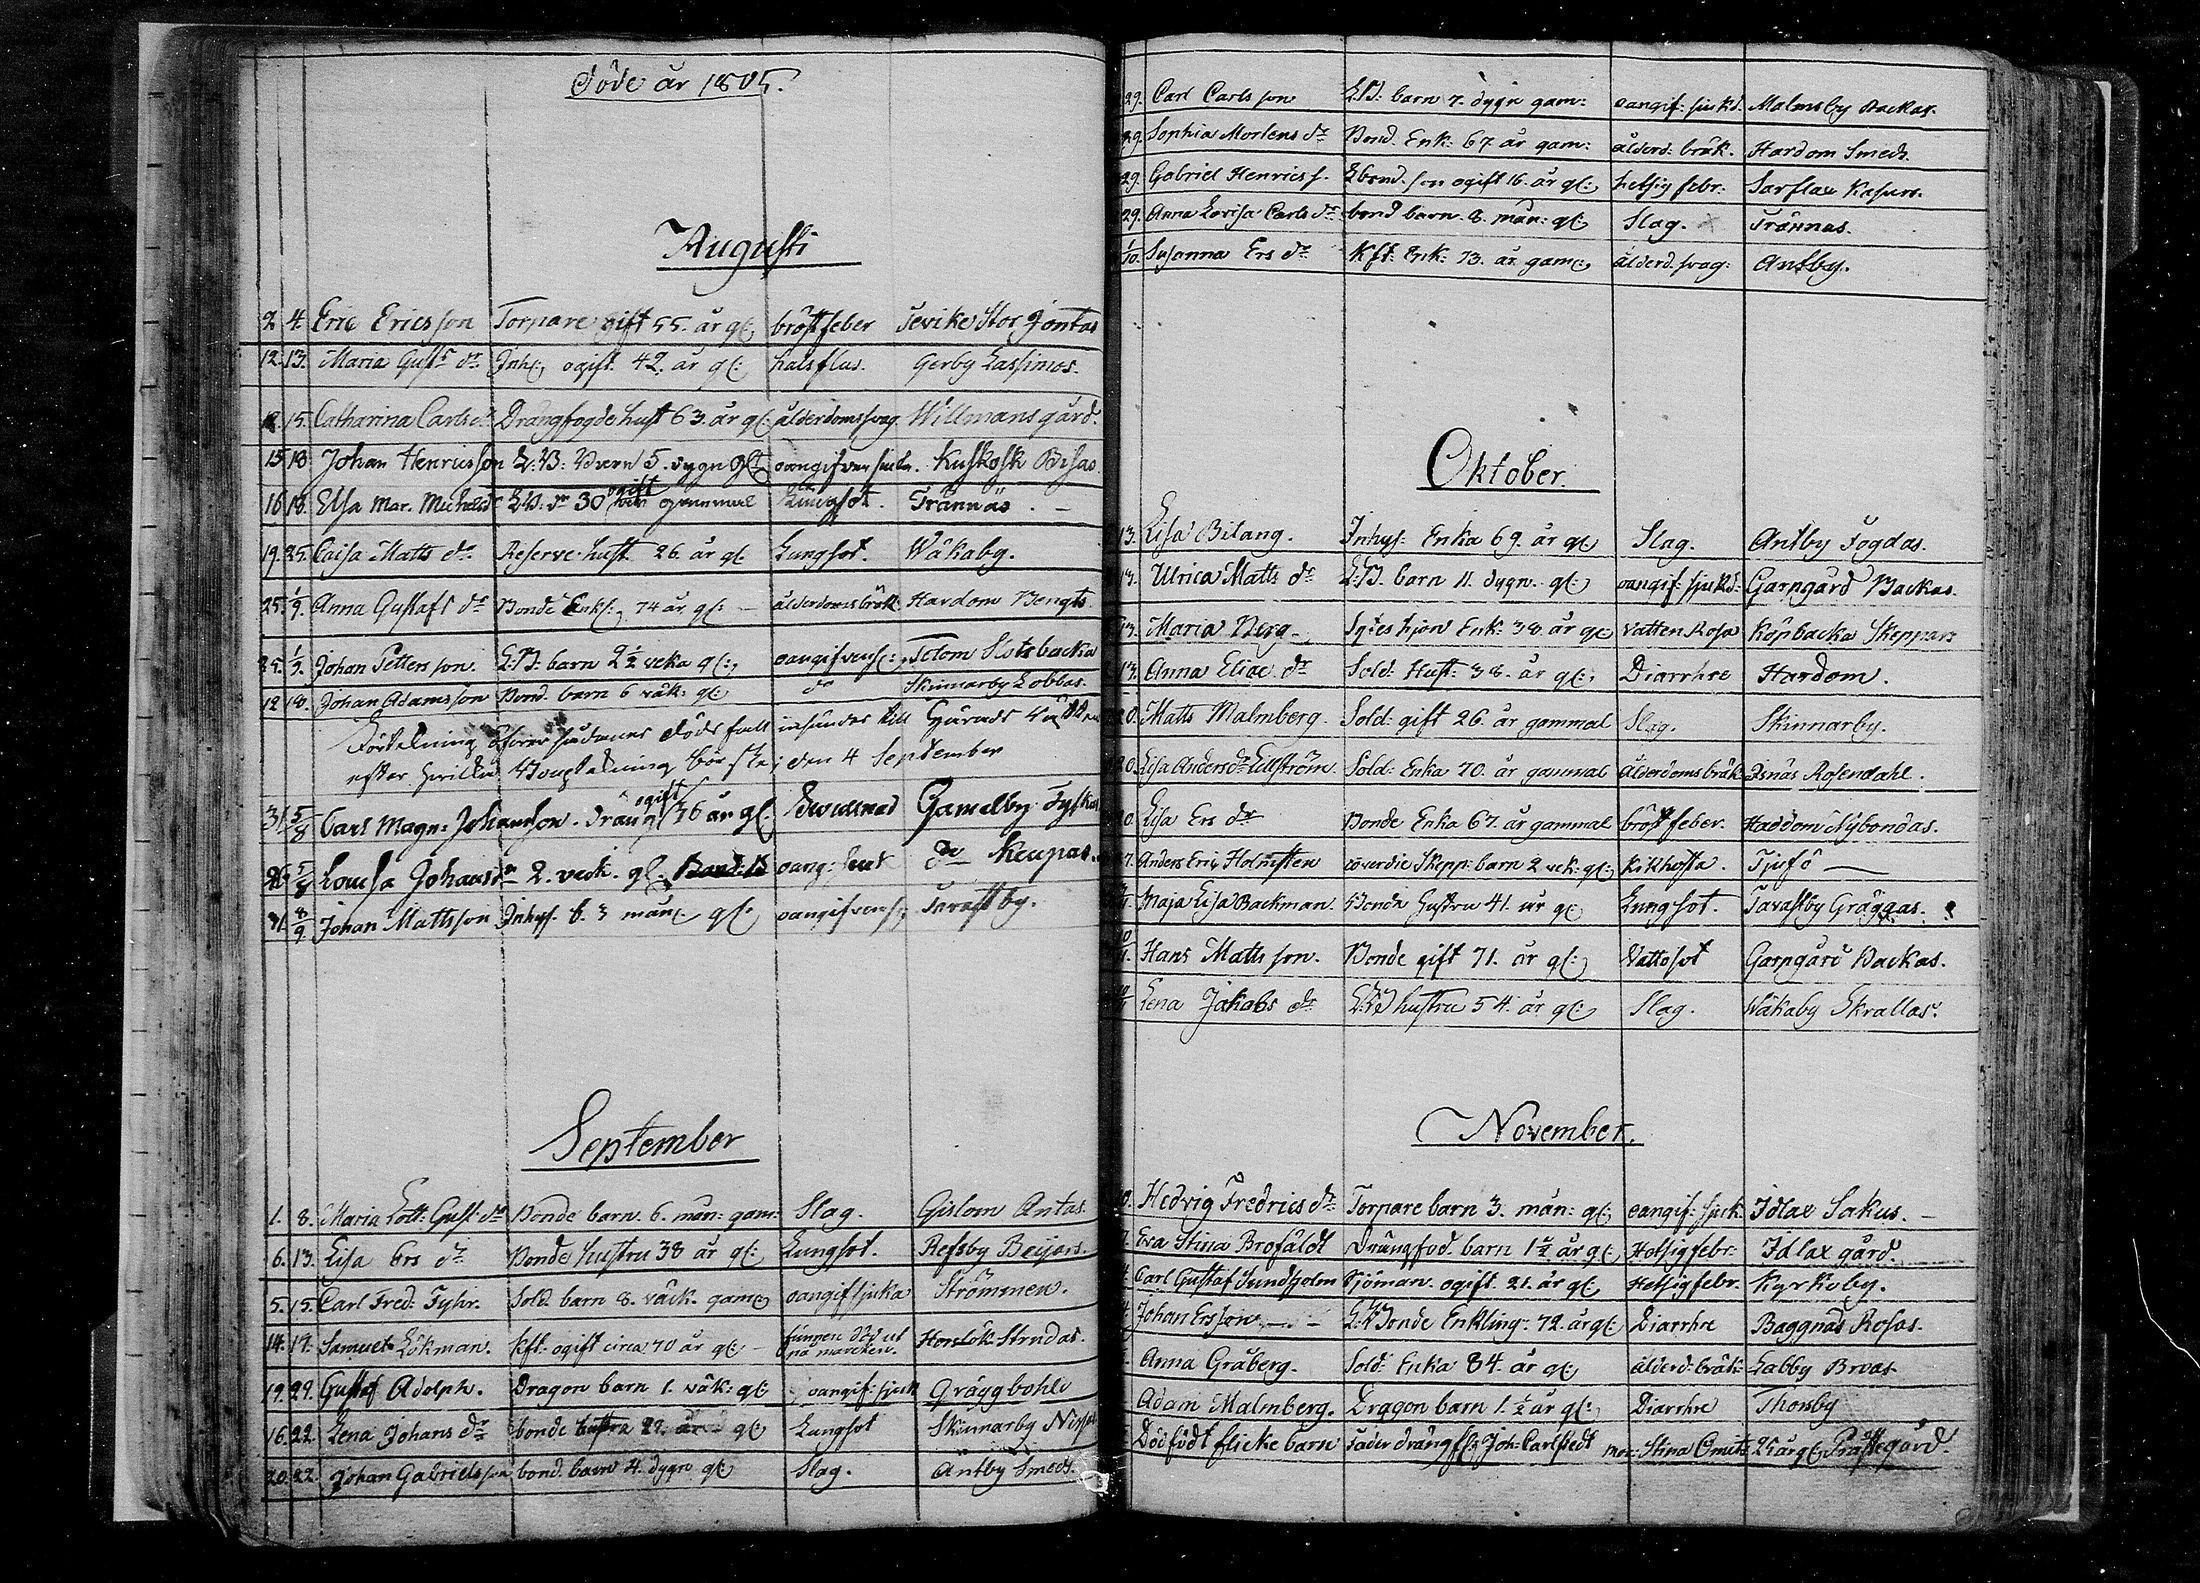 Döde år 1805.
Augusti
2. 4. Eric Ericsson Torpare gift 55. år gl: bröstfeber Tevike Stor Jontas
12. 13. Maria Gust: dr Inh: ogift. 42. år gl: halsflus. Gerby Lassimos.
12. 15. Catharina Carls dr Drängfogde hust 63. år gl: ålderdomssvag. Willmansgård.
15 18. Johan Henricsson L:B: Barn 5. dygn gl: oangifven sjuka. Kuskosk Bisas.
16 18. Elsa Mar. Michelsd L:B: dr 30 ogift gammal Lungsot. Trännäs. –
19. 25. Caisa Matts dr Reserve hust 26. år gl. Lungsot. Wäkaby.
25. 1/9. Anna Gustafs dr Bonde Enk: 74 år gl: – ålderdomsbräk Hardom Bengts.
25. 1/9. Johan Petterson. L:B: barn 2 1/2 veka gl: oangifven s: Tetom Slotsbacka
12 18. Johan Adamsson Bond. barn 6 väk: gl: do Skinnarby Lobbas.
Förtekning öfver dödsfall insändes till Härads
efter hvilken Bouptekning bör ske; den 4 September
31. 5/8 Carl Magn: Johansson. Dräng ogift 36 år gl. Gamelby Tyskas
26 5/8 Lovisa Johansd 2. veck. gl. oang: do Keupas.
31. 8/9 Johan Mattsson Inhys. b. 3 mån: gl: oangifven s: Tavastby.
September
1. 8. Maria Lott: Gust: dr Bonde barn. 6. mån: gam: Slag. Gislom Antas.
6. 13. Lisa Ers dr Bonde hustru 38 år gl: Lungsot. Refsby Beijars.
5. 15. Carl Fred: Fyhr. Sold. barn 8. väck. gam: oangif sjuka Strömmen.
14. 19. Samuel Lökman. Kft: ogift circa 70 år gl: – funnen död ut på marcken. Horslök Strndas.
19. 29. Gustaf Adolph. Dragon barn 1. väk: gl: oangif: sjuk Gräggbohle
16. 22. Lena Johans dr bonde hustru 29. år gl: Lungsot Skinnarby
20. 22. Johan Gabrielsson bond. barn 4. dygn gl: Slag. Antby Smeds.
29. Carl Carlsson L:B: barn 7. dygn gam: oangif: sjukd. Malmsby Backas.
29. Sophia Mortens dr Bond. Enk: 67. år gam: ålderd: bräk. Hardom Smeds.
29. Gabriel Henrics s. Lbond. son ogift 16. år gl: hetsig febr: Sarflax Kasurs.
29. Anna Lovisa Carls dr bond barn 8. mån: gl: Slag. Trännas.
1/10. Susanna Ers dr Kft: Enk: 73. år gam: ålderd. svag: Antby.
Oktober.
13. Lisa Bilang. Inhys: Enka 69. år gl: Slag. Antby Fogdas.
13. Ulrica Matts dr L:B. barn 11. dygn. gl: oangif: sjukd: Garpgård Backas.
13. Maria Berg. hjon Enk: 38. år gl: Vatten Kosa Köpbacka Skeppars
13. Anna Eliae dr Sold: Hust: 38. år gl: Diarrhre Hardom.
20. Matts Malmberg. Sold: gift 26. år gammal Slag. Skinnarby.
20. Lisa Anders dr Lillström Sold: Enka 70. år gammal Ålderdomsbräk Isnäs Rosendahl.
20. Lisa Ers dr Bonde Enka 67. år gammal bröstfeber. Haddom Nybondas.
27. Anders Eric Holmsten coverdie Skepp: barn 2 vek: gl: Kikhosta. Tjusö
Maja Lisa Backman. Bonde Hustru 41. år gl: Lungsot. Tavastby Gräggas.
10/11. Hans Mattsson. Bonde gift 71. år gl: Vattosot Garpgård Backas.
10/11 Lena Jakobs dr L:B hustru 54. år gl: Slag. Wäkaby Skrallas.
November.
10. Hedvig Fredrics dr Torpare barn 3. mån: gl: oangif: sjuk. Idlax Sakus. –
Eva Stina Brofäldt Drängfod. barn 1 1/2 år gl: Hetsig febr: Idlax gård.
Carl Gustaf Sundholm Sjöman. ogift. 21. år gl: Hetsig febr. Kyrkoby.
Johan Ersson L:Bonde Enkling. 72. år gl: Diarrhre Baggnäs Rosas.
Anna Gråberg. Sold: Enka 84. år gl: ålderd: bräk: Labby Broas.
Adam Malmberg. Dragon barn 1. 1/2 år gl: Diarrhre Thorsby
Dödfödt flicke barn fader dräng Joh: Carlstedt mor: Stina 25 år gl: Prästegård.